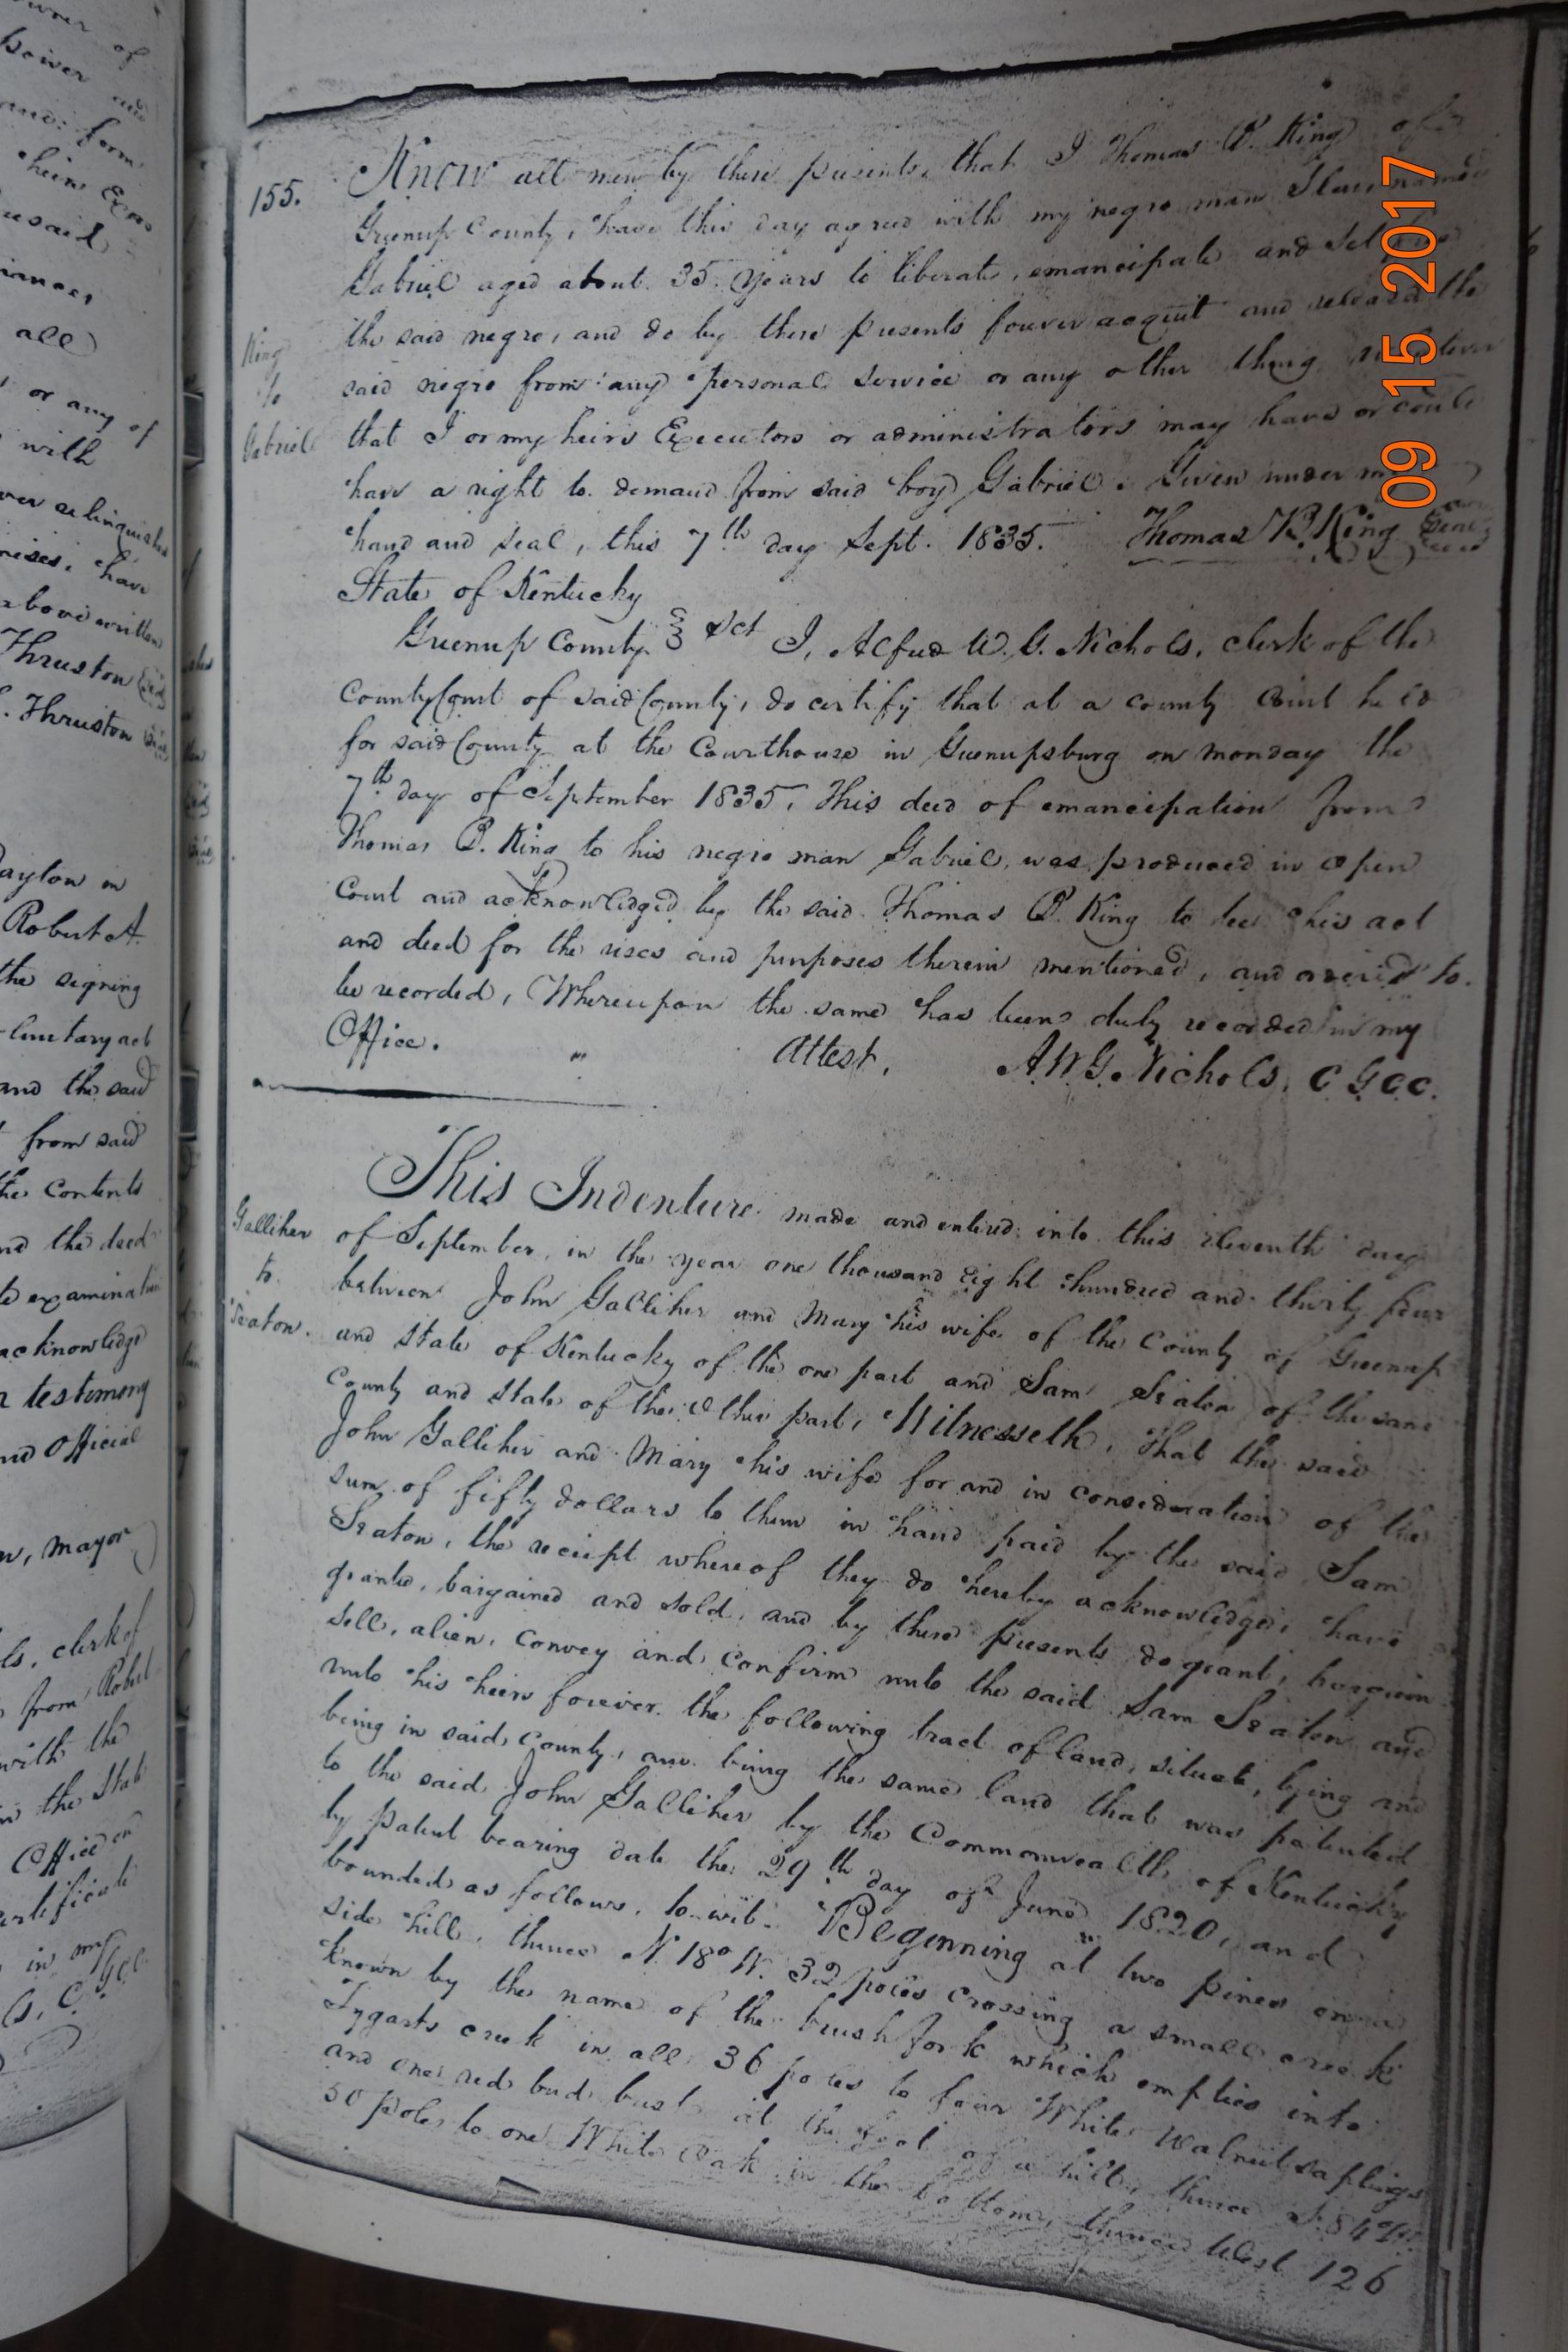 155.
Know all men by these presents, that I Thomas B. King of
Greenup County, have this day agreed with my negro man Slave named
Gabriel aged about 35 years to liberate, emancipate and set free
the said negro, and do by these presents forever acquit and released the
said negro from any personal service or any other thing whatever
that I or my heirs Executors or administrators may have or could
have a right to demand from said boy Gabriel. Given under my
hand and seal, this 7th day Sept. 1835. Thomas B. King Seal
King
to
Gabriel
State of Kentucky
Greenup County Sct I, Alfred W. G. Nichols, clerk of the
County Court of said County, do certify that at a county court held
for said County at the Courthouse in Greenupsburg on monday the
7th day of September 1835, This deed of emancipation from
Thomas B. King to his negro man Gabriel, was produced in open
Court and acknowledged by the said Thomas B. King to bee his act
and deed for the uses and purposes therein mentioned, and ordered to
be recorded, Whereupon the same has been duly recorded in my
Office. " Attest, A.W.G. Nichols, C G C C.
Galliher
to
Seaton.
This Indenture made and entered into this eleventh day
of September, in the year one thousand Eight hundred and thirty four
between John Galliher and Mary his wife of the County of Greenup
and State of Kentucky of the one part and Sam Seaton of the same
County and State of the other part, Witnesseth, That the said
John Galliher and Mary his wife for and in consideration of the
sum of fifty dollars to them in hand paid by the said Sam
Seaton, the receipt whereof they do hereby acknowledge, have
granted, bargained and sold, and by these presents do grant, bargain
sell, alien, convey and confirm unto the said Sam Seaton and
unto his heirs forever the following tract of land, situate, lying and
being in said County, and being the same land that was patented
to the said John Galliher by the Commonwealth of Kentucky
by patent bearing date the 29th day of June 1820, and
bounded as follows, to wit. Beginning at two pines on a
side hill, thence N. 18° W. 32 poles crossing a small creek
known by the name of the brush fork which empties into
Tygarts creek in all 36 poles to four White Walnut saplings
and one red bud bush at the foot of a hill, thence S. 84° W.
50 poles to one White Oak in the bottom, thence West 126
Thruston
Thruston
all
or any of
with
have
above written
aylor in
Robert A.
the signing
and the said
from said
the contents
acknowledge
testimony
and Official
mayor
clerk of
with the
in the State
Office
in my
09 15 2017